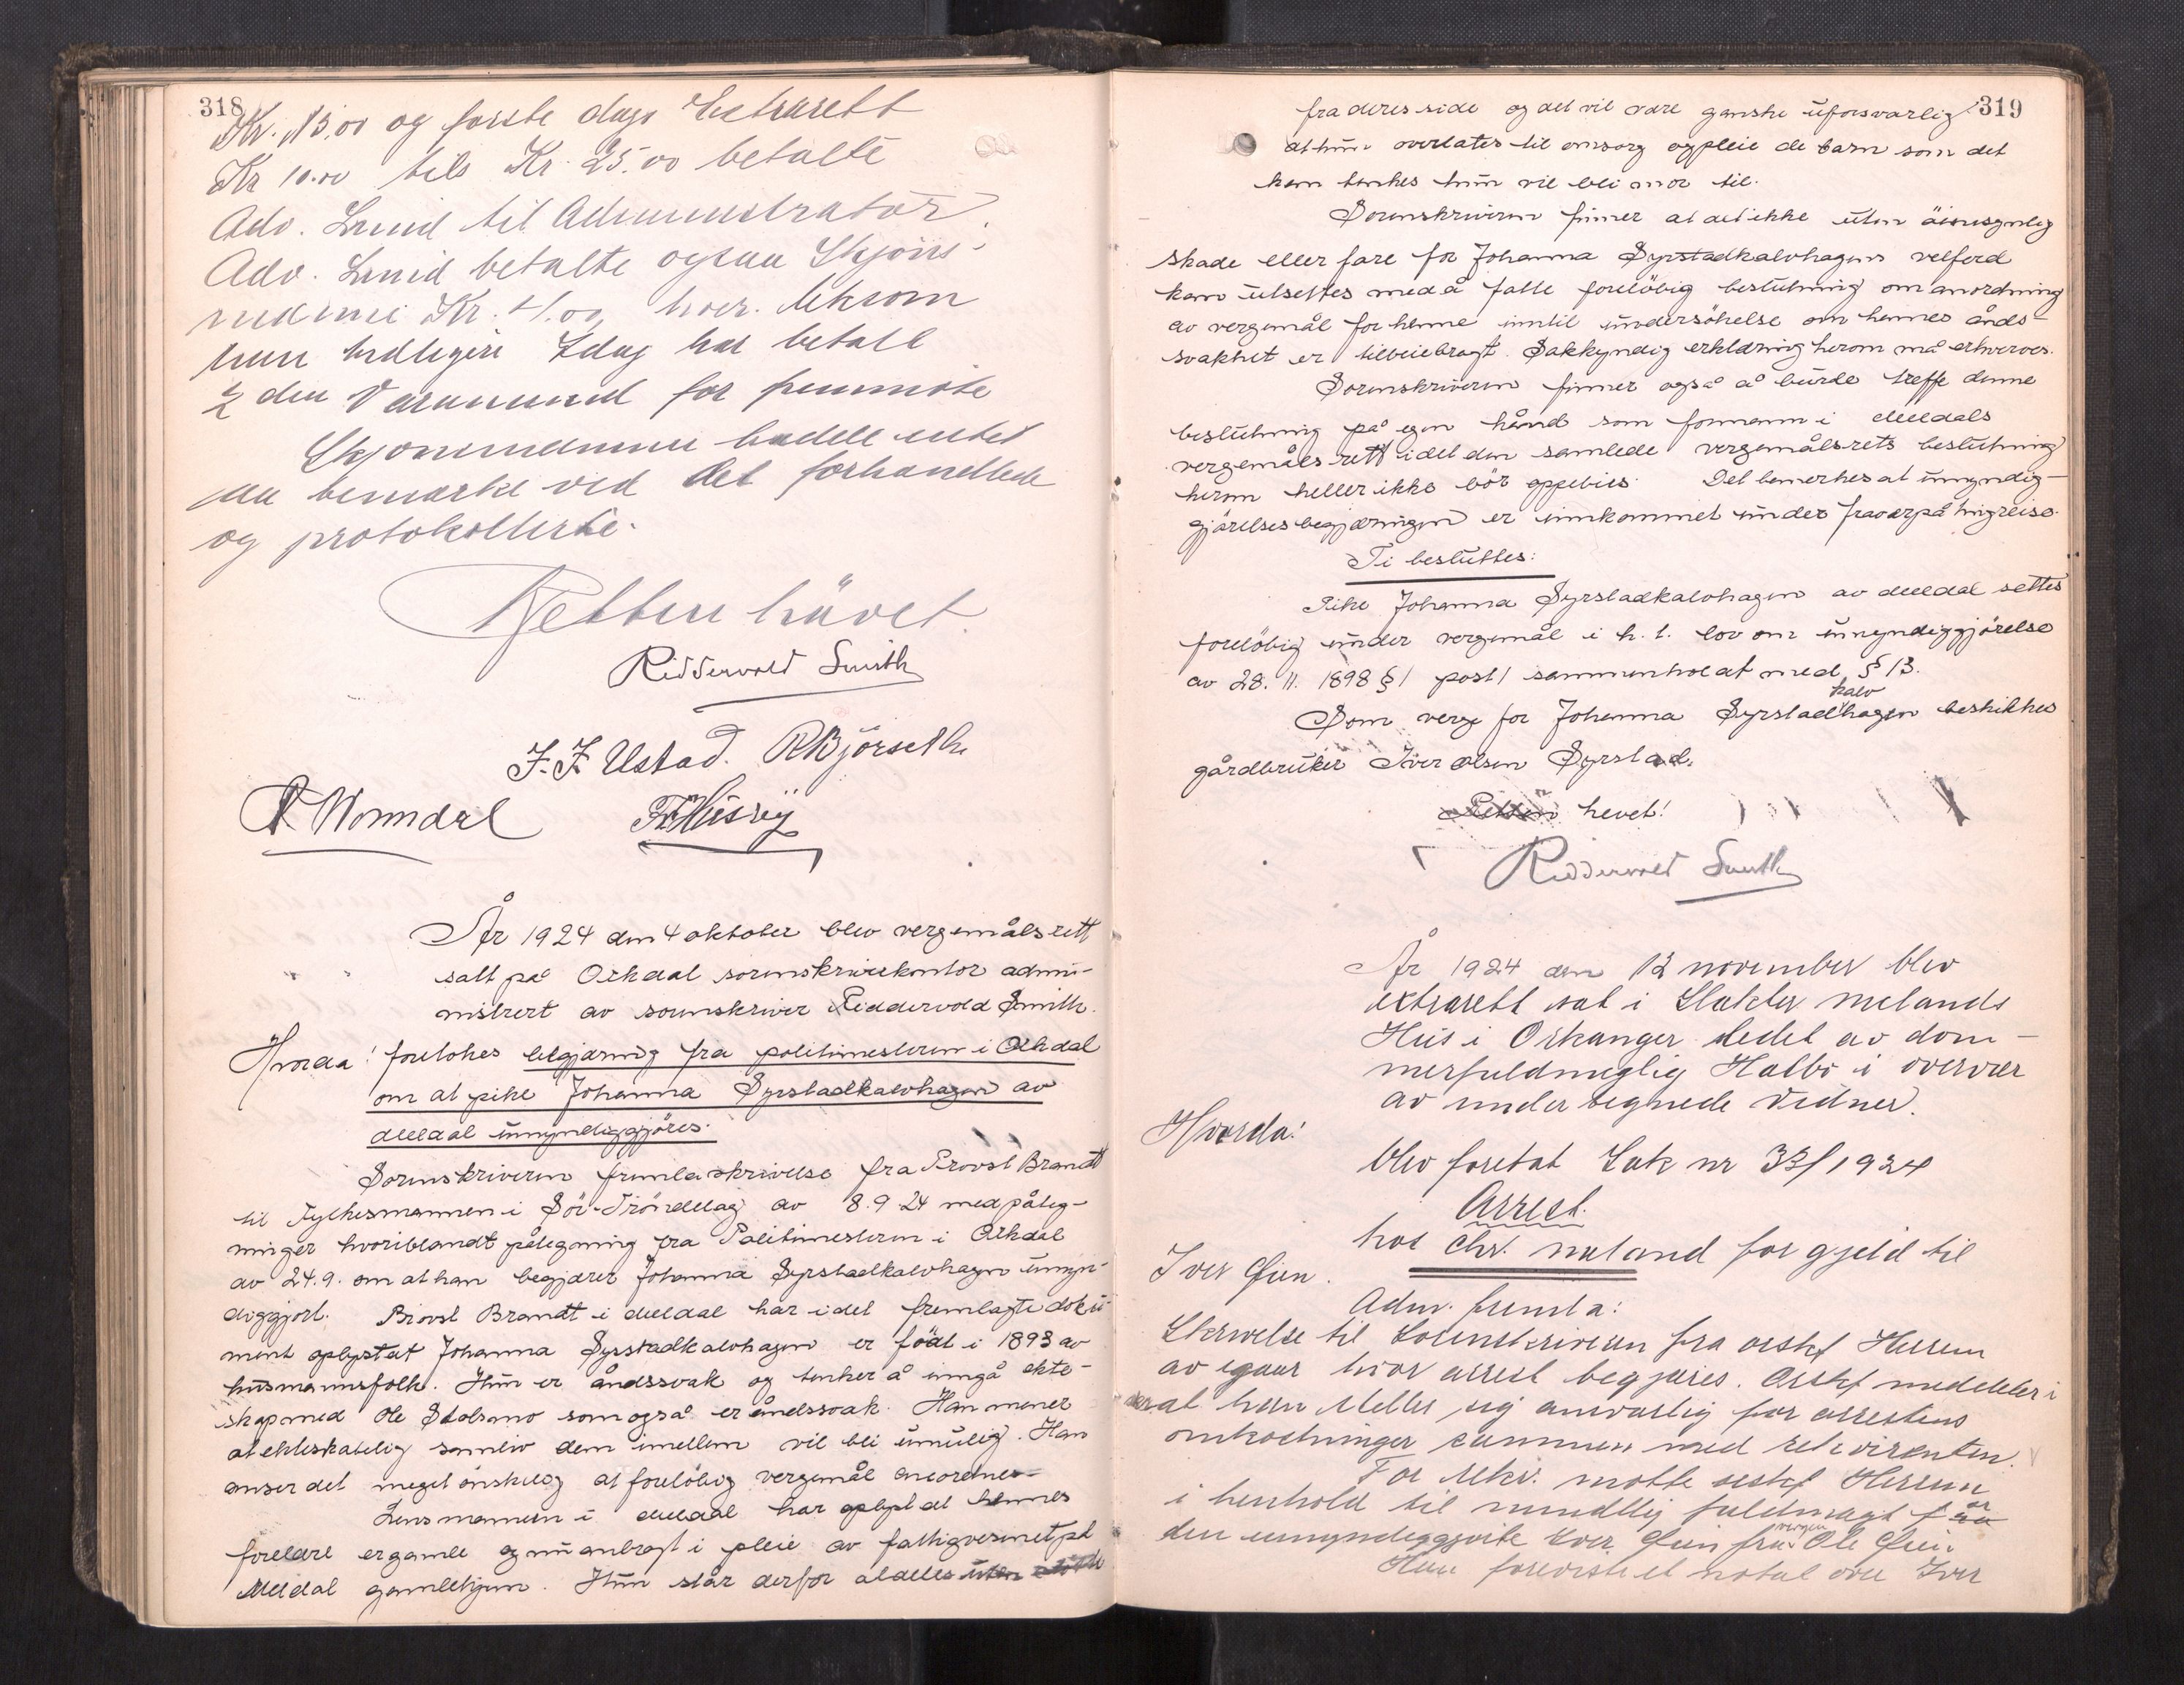 318
Kr. 15.00 og første dags Extrarett
Kr 10.00 tils Kr. 25.00 betalte
Adv. Lund til Administrator.
Adv. Lund betalte ogsaa Skjøns-
mdene Kr. 4.00 hver. likesom
han tidligere Idag har betalt
den Varamand for fremmöte
Skjønsmdene hadde intet
aa bemærke ved det forhandlede
og protokollerte.
Retten hævet.
Ridderwold Smith
J. J. Ustad. R Björseth
Fr Husby
År 1924 den 4 oktober blev vergemålsrett
satt på Orkdal sorenskriverkontor admi-
nistrert av sorenskriver Riddervold Smith.
Hvorda! foretokes begjæring fra politimesteren i Orkdal
om at pike Johanna Syrstadkalvhagen av
Meldal umyndiggjöres.
Sorenskriveren fremla skrivelse fra Provst Brandt
til Fylkesmannen i Sör-Tröndelag av 8.9.24 med påteg-
ninger hvoriblandt påtegning fra Politimesteren i Orkdal
av 24.9. om at han begjærer Johanna Syrstadkalvhagen umyn-
diggjort. Provst Brandt i Meldal har i det fremlagte doku-
ment oplyst at Johanna Syrstadkalvhagen er född i 1893 av
husmannsfolk. Hun er åndssvak og tenker å inngå ekte-
skap med Ole Stolsmo som også er åndssvak. Han mener
at ekteskabelig samliv dem imellem vil bli umulig. Han
anser det meget önskelig at forelöbig vergemål anordnes.
Lensmannen i Meldal har oplyst at hennes
foreldre er gamle og nu anbragt i pleie av fattigvesenet på
Meldal gamlehjem. Hun står derfor aldeles uten stötte
319
fra deres side og det vil være ganske uforsvarlig
at hun overlates til omsorg og pleie de barn som det
kan tenkes hun vil bli mor til.
Sorenskriveren finner at det ikke uten öiensynlig
skade eller fare for Johanna Syrstadkalvhagens velferd
kan utsettes med å fatte forelöbig beslutning om anordning
av vergemål for henne inntil undersökelse om hennes ånds-
svakhet er tilveiebragt. Sakkyndig erklæring herom må erhverves.
Sorenskriveren finner også å burde treffe denne
beslutning på egen hånd som formann i Meldals
vergemålsrett idet den samlede vergemålsrets beslutning
herom heller ikke bör oppebies. Det bemerkes at umyndig-
gjörelsesbegjæringen er innkommet under fravær på tingreise.
Ti besluttes:
Pike Johanna Syrstadkalvhagen av Meldal settes
forelöbig under vergemål i h. t. lov om umyndiggjörelse
av 28. 11. 1898 § 1 post 1 sammenholdt med § 13.
Som verge for Johanna Syrstadkalvhagen beskikkes
gårdbruker Iver Olsen Syrstad.
Retten hevet!
Ridderwold Smith
År 1924 den 12 november blev
extrarett sat i Slakter Melands
Hus i Orkanger ledet av dom-
merfuldmegtig Halbo i overvær
av undertegnede vidner.
Hvorda!
blev foretat Sak nr 33/1924
Arrest.
hos Chr. Meland for gjeld til
Iver Gien.
Adm. fremla:
Skrivelse til Sorenskriveren fra
av igaar hvor arrest begjæres. meddeler i
at han stiller sig ansvarlig for arrestens
omkostninger sammen med rekvirenten.
For rekv. møtte
i henhold til mundtlig fuldmagt for
den umyndiggjorte Iver Gien fra vergen Ole Gien.
Han foreviste et notat over Iver